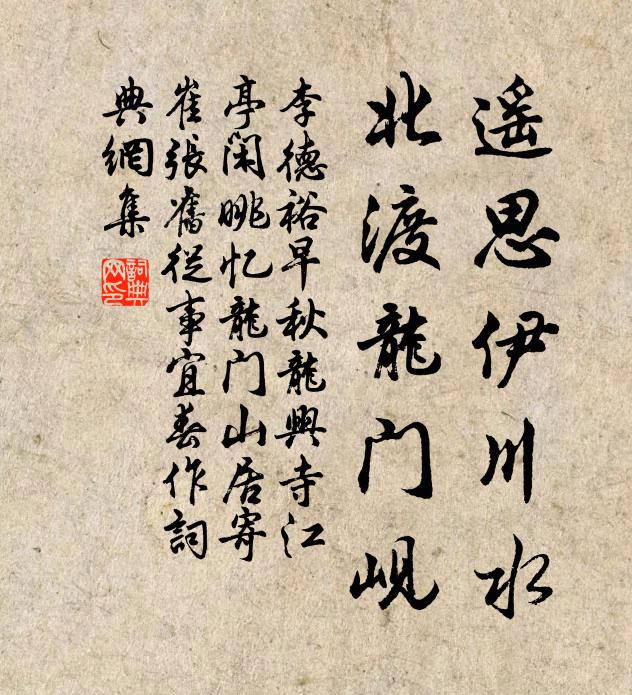 遥思伊川水
北渡龍门峴
李德裕早秋龍興寺江
亭闲眺忆龍门山居寄
崔張舊從事宜春作詞
典網集
詞典网印